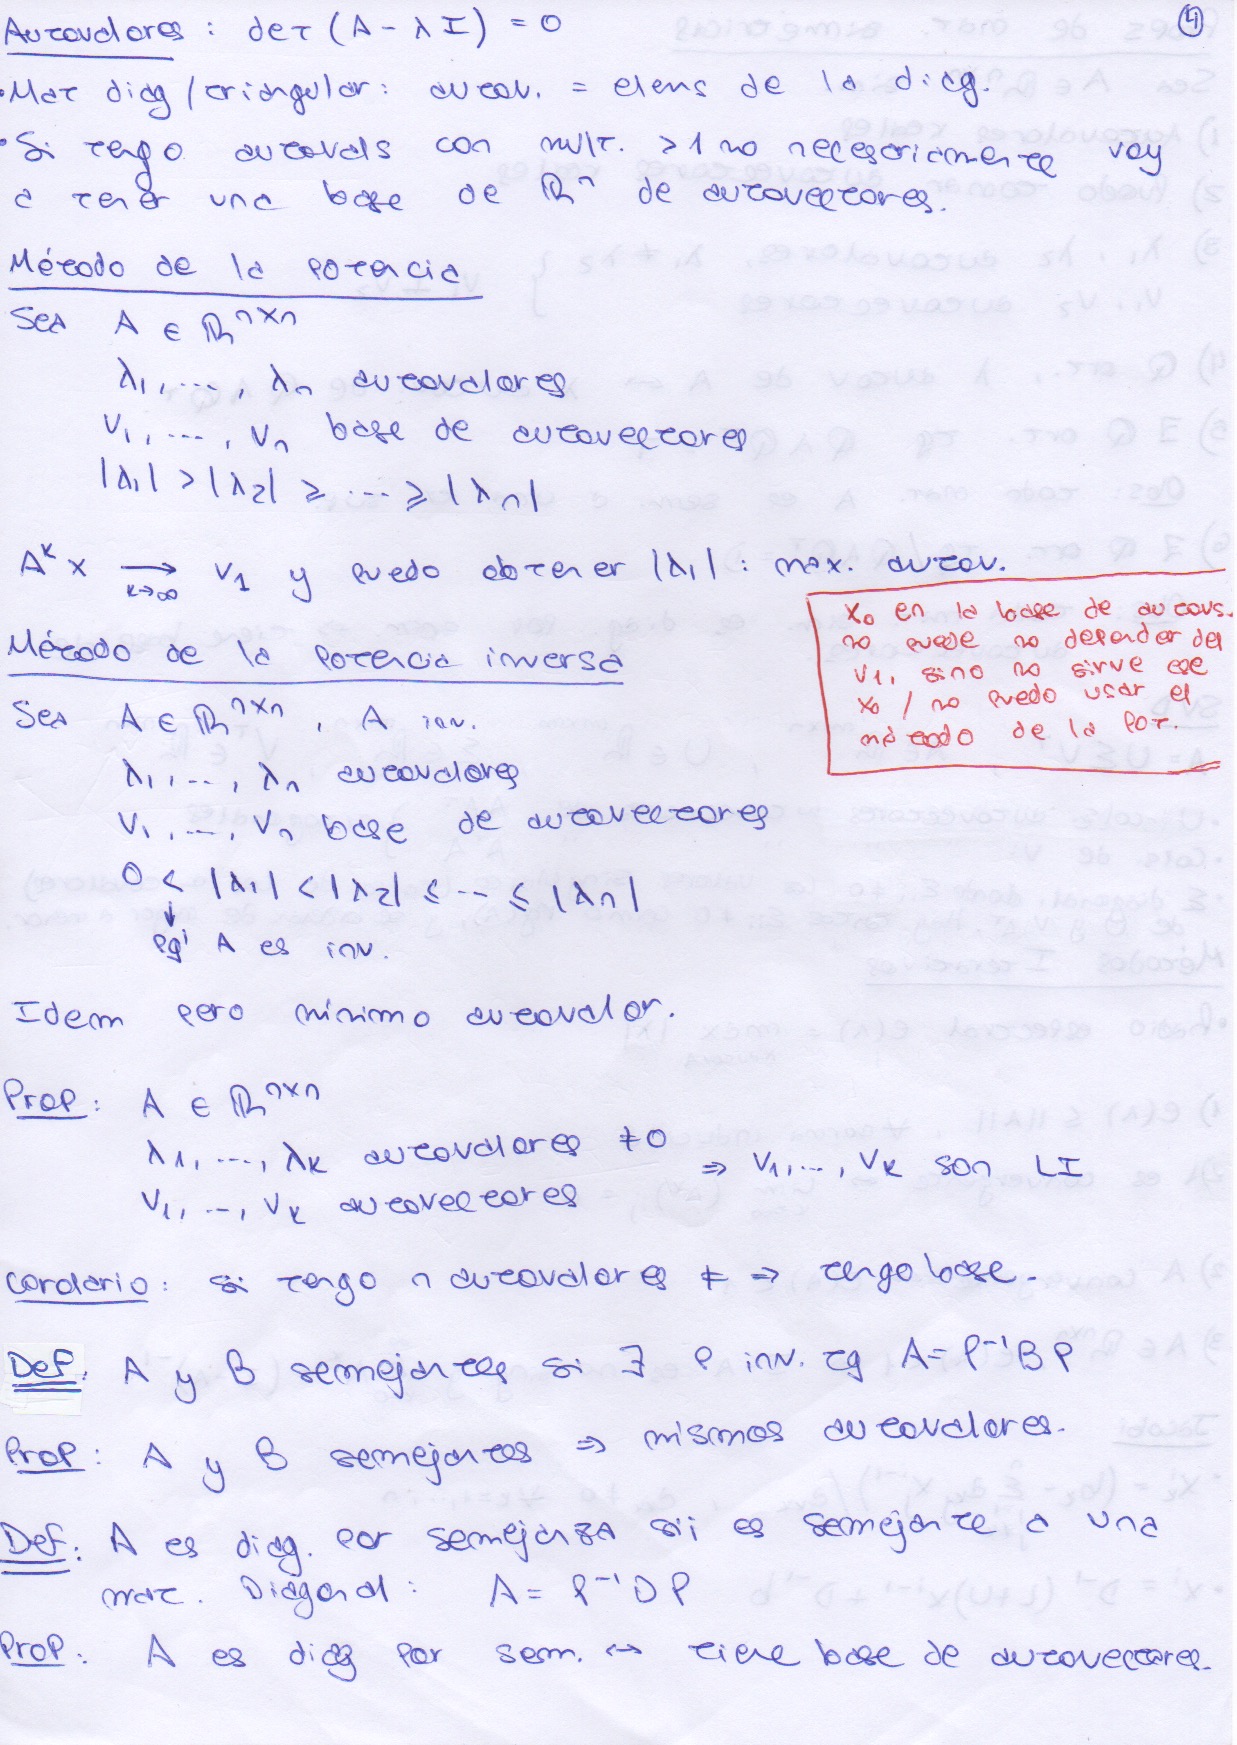 ④
Autovalores: det(A - λI) = 0
• Mat diag/triangular: autov. = elems de la diag.
• Si tengo autovals con mult. > 1 no necesariamente voy
a tener una base de ℝⁿ de autovectores.
Método de la potencia
Sea A ∈ ℝⁿˣⁿ
λ₁, ..., λₙ autovalores
v₁, ..., vₙ base de autovectores
|λ₁| > |λ₂| ≥ ... ≥ |λₙ|
Aᵏx →ₖ→∞ v₁ y puedo obtener |λ₁|: max. autov.
x₀ en la base de autovs.
no puede no depender del
v₁, sino no sirve ese
x₀ / no puedo usar el
método de la pot.
Método de la potencia inversa
Sea A ∈ ℝⁿˣⁿ, A inv.
λ₁, ..., λₙ autovalores
v₁, ..., vₙ base de autovectores
0 < |λ₁| < |λ₂| ≤ ... ≤ |λₙ|
↓
pq' A es inv.
Idem pero mínimo autovalor.
Prop: A ∈ ℝⁿˣⁿ
λ₁, ..., λₖ autovalores ≠0
⇒ v₁, ..., vₖ son LI
v₁, ..., vₖ autovectores
Corolario: si tengo n autovalores ≠ ⇒ tengo base.
Def: A y B semejantes si ∃ P inv. tq A = P⁻¹BP
Prop: A y B semejantes ⇒ mismos autovalores.
Def: A es diag. por semejanza sii es semejante a una
mat. Diagonal: A = P⁻¹DP
Prop: A es diag por sem. ↔ tiene base de autovectores.